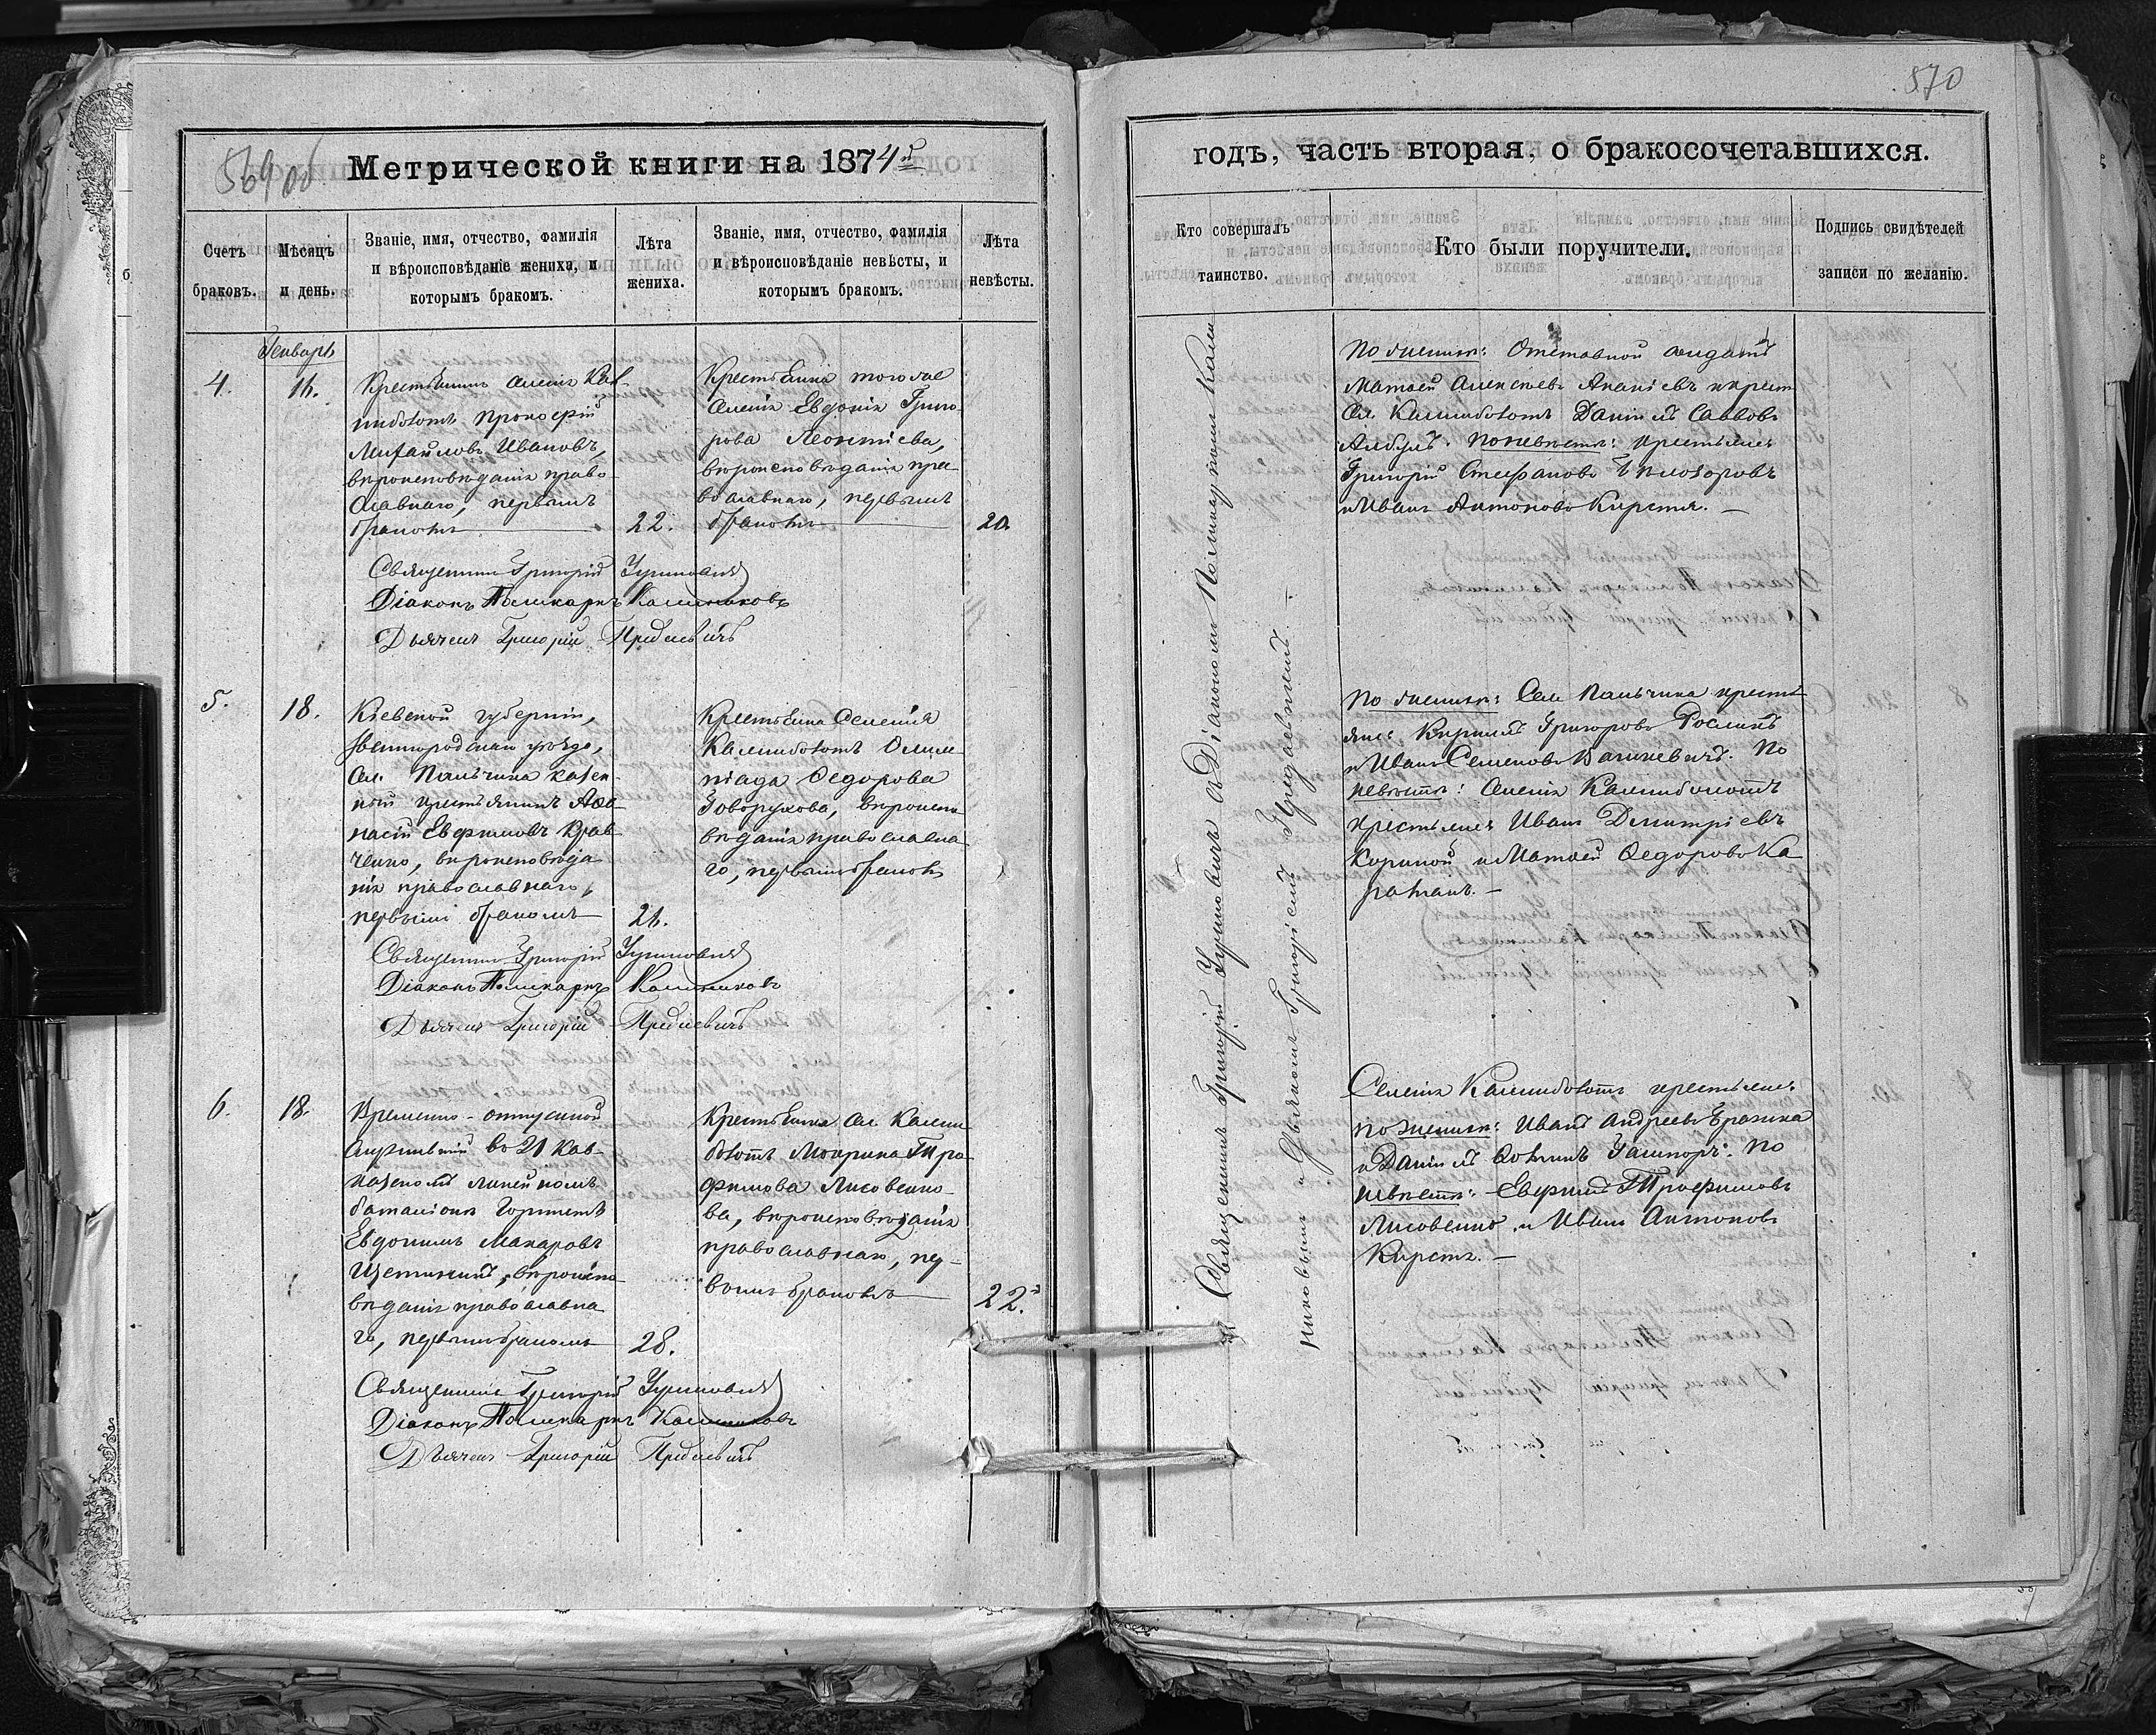 569 об
Метрической книги на 1874й
Счетъ браковъ.
Мѣсяцъ и день.
Званіе, имя, отчество, фамилія и вѣроисповѣданіе жениха, и которымъ бракомъ.
Лѣта жениха.
Званіе, имя, отчество, фамилія и вѣроисповѣданіе невѣсты, и которымъ бракомъ.
Лѣта невѣсты.
Генварь
4.
16.
Крестьянинъ селенія Кал-
Прокофій
Михайловъ Ивановъ,
вѣроисповѣданія право
славнаго, первымъ
бракомъ
22.
Крестьянка того же
селенія Евдокія Григо-
рова Леонтіева,
вѣроисповѣданія пра-
вославнаго, первымъ
бракомъ
20.
Священникъ Григорій
Діаконъ Поликарпъ Калинниковъ
Дьячекъ Григорій
5.
18.
Кіевской губерніи,
Звенигородскаго уѣзда,
сел. Пальчика казен-
ный крестьянинъ Аѳа-
насій Евфимовъ Крав
ченко, вѣроисповѣда
нія православнаго,
первымъ бракомъ
21.
Крестьянка селенія
Калмиболотъ Олим
піада Ѳедорова
Говорухова, вѣроиспо
вѣданія православна
го, первымъ бракомъ
Священникъ Григорій
Діаконъ Поликарпъ Калинниковъ
Дьячекъ Григорій
6.
18.
Временно-отпускной
служившій во 21 Кав-
казскомъ линейномъ
баталіонѣ
Евдокимъ Макаровъ
Щетининъ, вѣроиспо-
вѣданія православна
го, первымъ бракомъ
28.
Крестьянка сел. Калми
болотъ Мокрина Тро
фимова Лисовенко-
ва, вѣроисповѣданія
православнаго, пер-
вымъ бракомъ
22.
Священникъ Григорій
Діаконъ Поликарпъ Калинниковъ
Дьячекъ Григорій
870
годъ, часть вторая, о бракосочетавшихся.
Кто совершалъ таинство.
Кто были поручители.
Подпись свидѣтелей записи по желанію.
Священникъ Григорій съ Діакономъ Поликарпомъ Калин
никовымъ и Дьячкомъ Григоріемъ
По женихѣ: Отставной солдатъ
Матѳей Алексѣевъ Ананіевъ и крест
сел. Калмиболотъ Даніилъ Саввовъ
Албулъ. По невѣстѣ: крестьяне
Григорій Стефановъ
и Иванъ Антоновъ Кирста.
По женихѣ: Сел. Пальчика кресть
яне: Кириллъ Григоровъ
и Иванъ Семеновъ По
невѣстѣ: селенія Калмиболотъ
крестьяне Иванъ Дмитріевъ
и Матѳей Ѳедоровъ Ка
раманъ.
Селенія Калмиболотъ крестьяне
по женихѣ: Иванъ Андреевъ
и Даніилъ По
невѣстѣ: Евфимъ Трофимовъ
Лисовенко и Иванъ Антоновъ
Кирста.